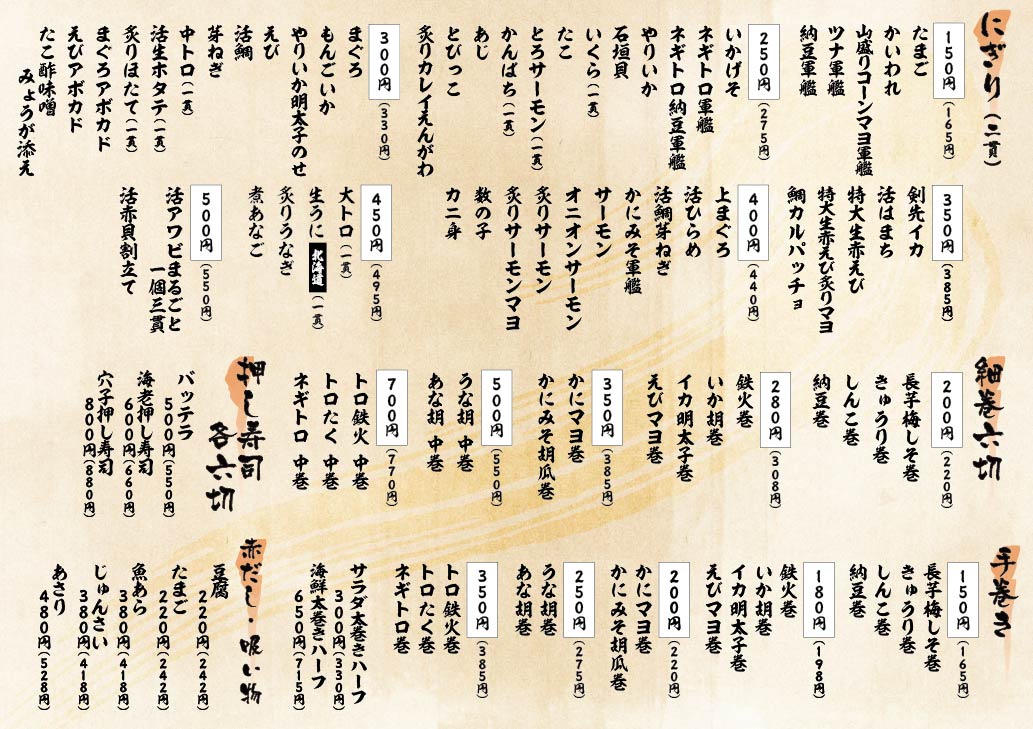 にぎり(二貫)
150円(165円)
たまご
かいわれ
山盛りコーンマヨ軍艦
ツナ軍艦
納豆軍艦
250円(275円)
いかげそ
ネギトロ軍艦
ネギトロ納豆軍艦
やりいか
石垣貝
いくら(一貫)
たこ
とろサーモン(一貫)
かんぱち(一貫)
あじ
とびっこ
炙りカレイえんがわ
300円(330円)
まぐろ
もんごいか
やりいか明太子のせ
えび
活鯛
芽ねぎ
中トロ(一貫)
活生ホタテ(一貫)
炙りほたて(一貫)
まぐろアボカド
えびアボカド
たこ酢味噌
みょうが添え
350円(385円)
剣先イカ
活はまち
特大生赤えび
特大生赤えび炙りマヨ
鯛カルパッチョ
400円(440円)
上まぐろ
活ひらめ
活鯛芽ねぎ
かにみそ軍艦
サーモン
オニオンサーモン
炙りサーモン
炙りサーモンマヨ
数の子
カニ身
450円(495円)
大トロ(一貫)
生うに 北海道(一貫)
炙りうなぎ
煮あなご
500円(550円)
活アワビまるごと
一個三貫
活赤貝割立て
細巻六切
200円(220円)
長芋梅しそ巻
きゅうり巻
しんこ巻
納豆巻
280円(308円)
鉄火巻
いか胡巻
イカ明太子巻
えびマヨ巻
350円(385円)
かにマヨ巻
かにみそ胡瓜巻
500円(550円)
うな胡 中巻
あな胡 中巻
700円(770円)
トロ鉄火 中巻
トロたく 中巻
ネギトロ 中巻
押し寿司
各六切
バッテラ
500円(550円)
海老押し寿司
600円(660円)
穴子押し寿司
800円(880円)
手巻き
150円(165円)
長芋梅しそ巻
きゅうり巻
しんこ巻
納豆巻
180円(198円)
鉄火巻
いか胡巻
イカ明太子巻
えびマヨ巻
200円(220円)
かにマヨ巻
かにみそ胡瓜巻
250円(275円)
うな胡巻
あな胡巻
350円(385円)
トロ鉄火巻
トロたく巻
ネギトロ巻
サラダ太巻きハーフ
300円(330円)
海鮮太巻きハーフ
650円(715円)
赤だし・吸い物
豆腐
220円(242円)
たまご
220円(242円)
魚あら
380円(418円)
じゅんさい
380円(418円)
あさり
480円(528円)